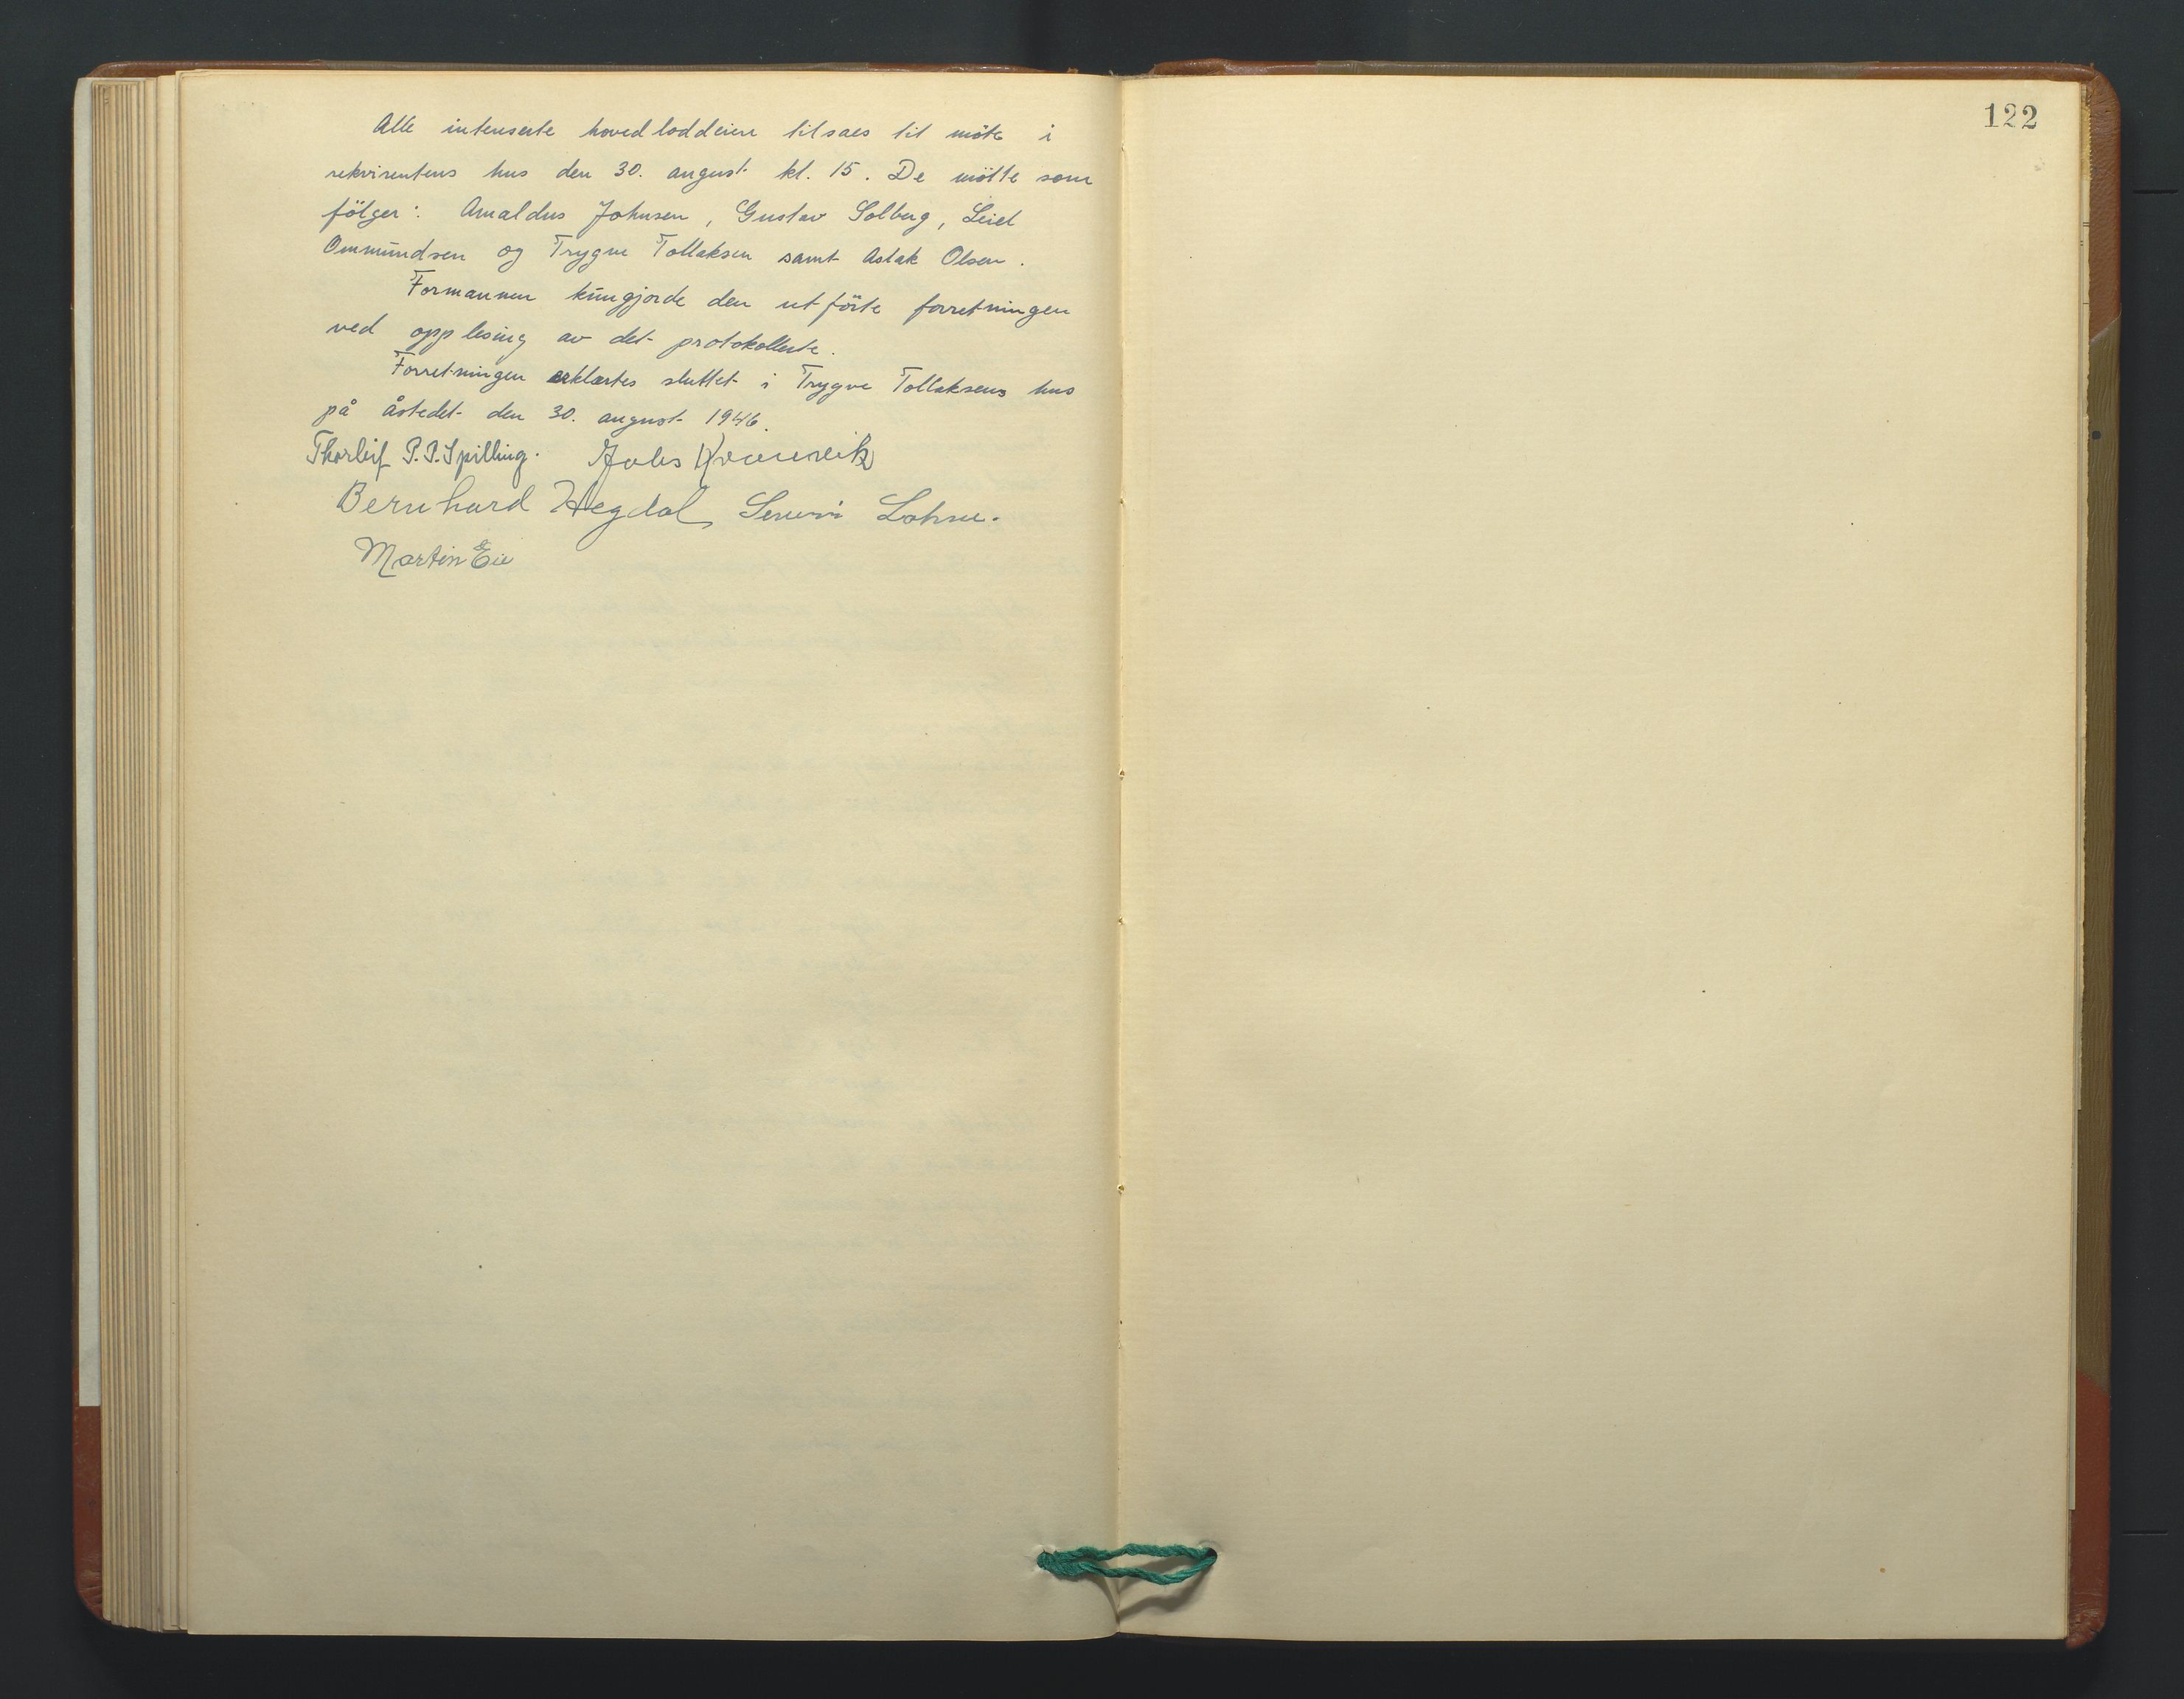 Alle interserte hovedloddeiere tilsaes til møte i
rekvirentens hus den 30. august kl. 15. De møtte som
følger: Arnaldus Johnsen, Gustav Solberg, Leiel
Ommundsen og Trygve Tollaksen samt Aslak Olsen.
Formannen kungjorde den utførte forretningen
ved opplesing av det protokollerte.
Forretningen erklærtes sluttet i Trygve Tollaksens hus
på åstedet den 30. august 1946.
Thorleif P.P. Spilling. Kvannvik
Bernhard Hegdal Lohne.
Martin Eie
122